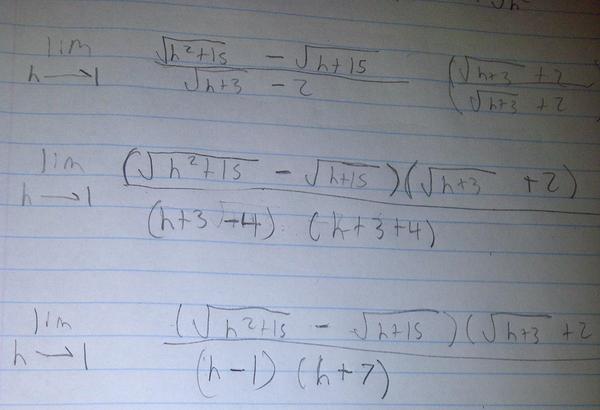 lim h→1 (√(h²+15) - √(h+15))/(√(h+3) - 2) ((√(h+3) + 2)/(√(h+3) + 2)
lim h→1 ((√(h²+15) - √(h+15))(√(h+3) + 2))/((h+3-4) (h+3+4))
lim h→1 ((√(h²+15) - √(h+15))(√(h+3) + 2)/((h-1) (h+7))